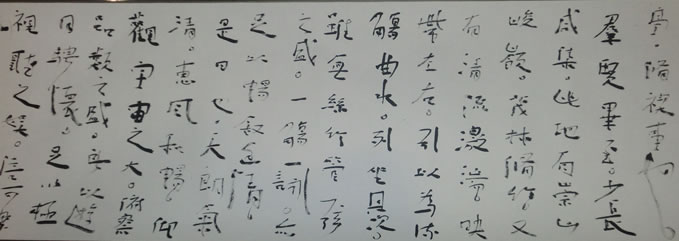 亭。脩禊事也
羣賢畢至。少長
咸集。此地有崇山
峻嶺。茂林脩竹。又
有清流激湍。映
帶左右。引以為流
觴曲水。列坐其次。
雖無絲竹管弦
之盛。一觴一詠。亦
足以暢敘幽情。
是日也。天朗氣
清。惠風和暢。仰
觀宇宙之大。俯察
品類之盛。所以遊
目騁懷。足以極
視聽之娛。信可樂